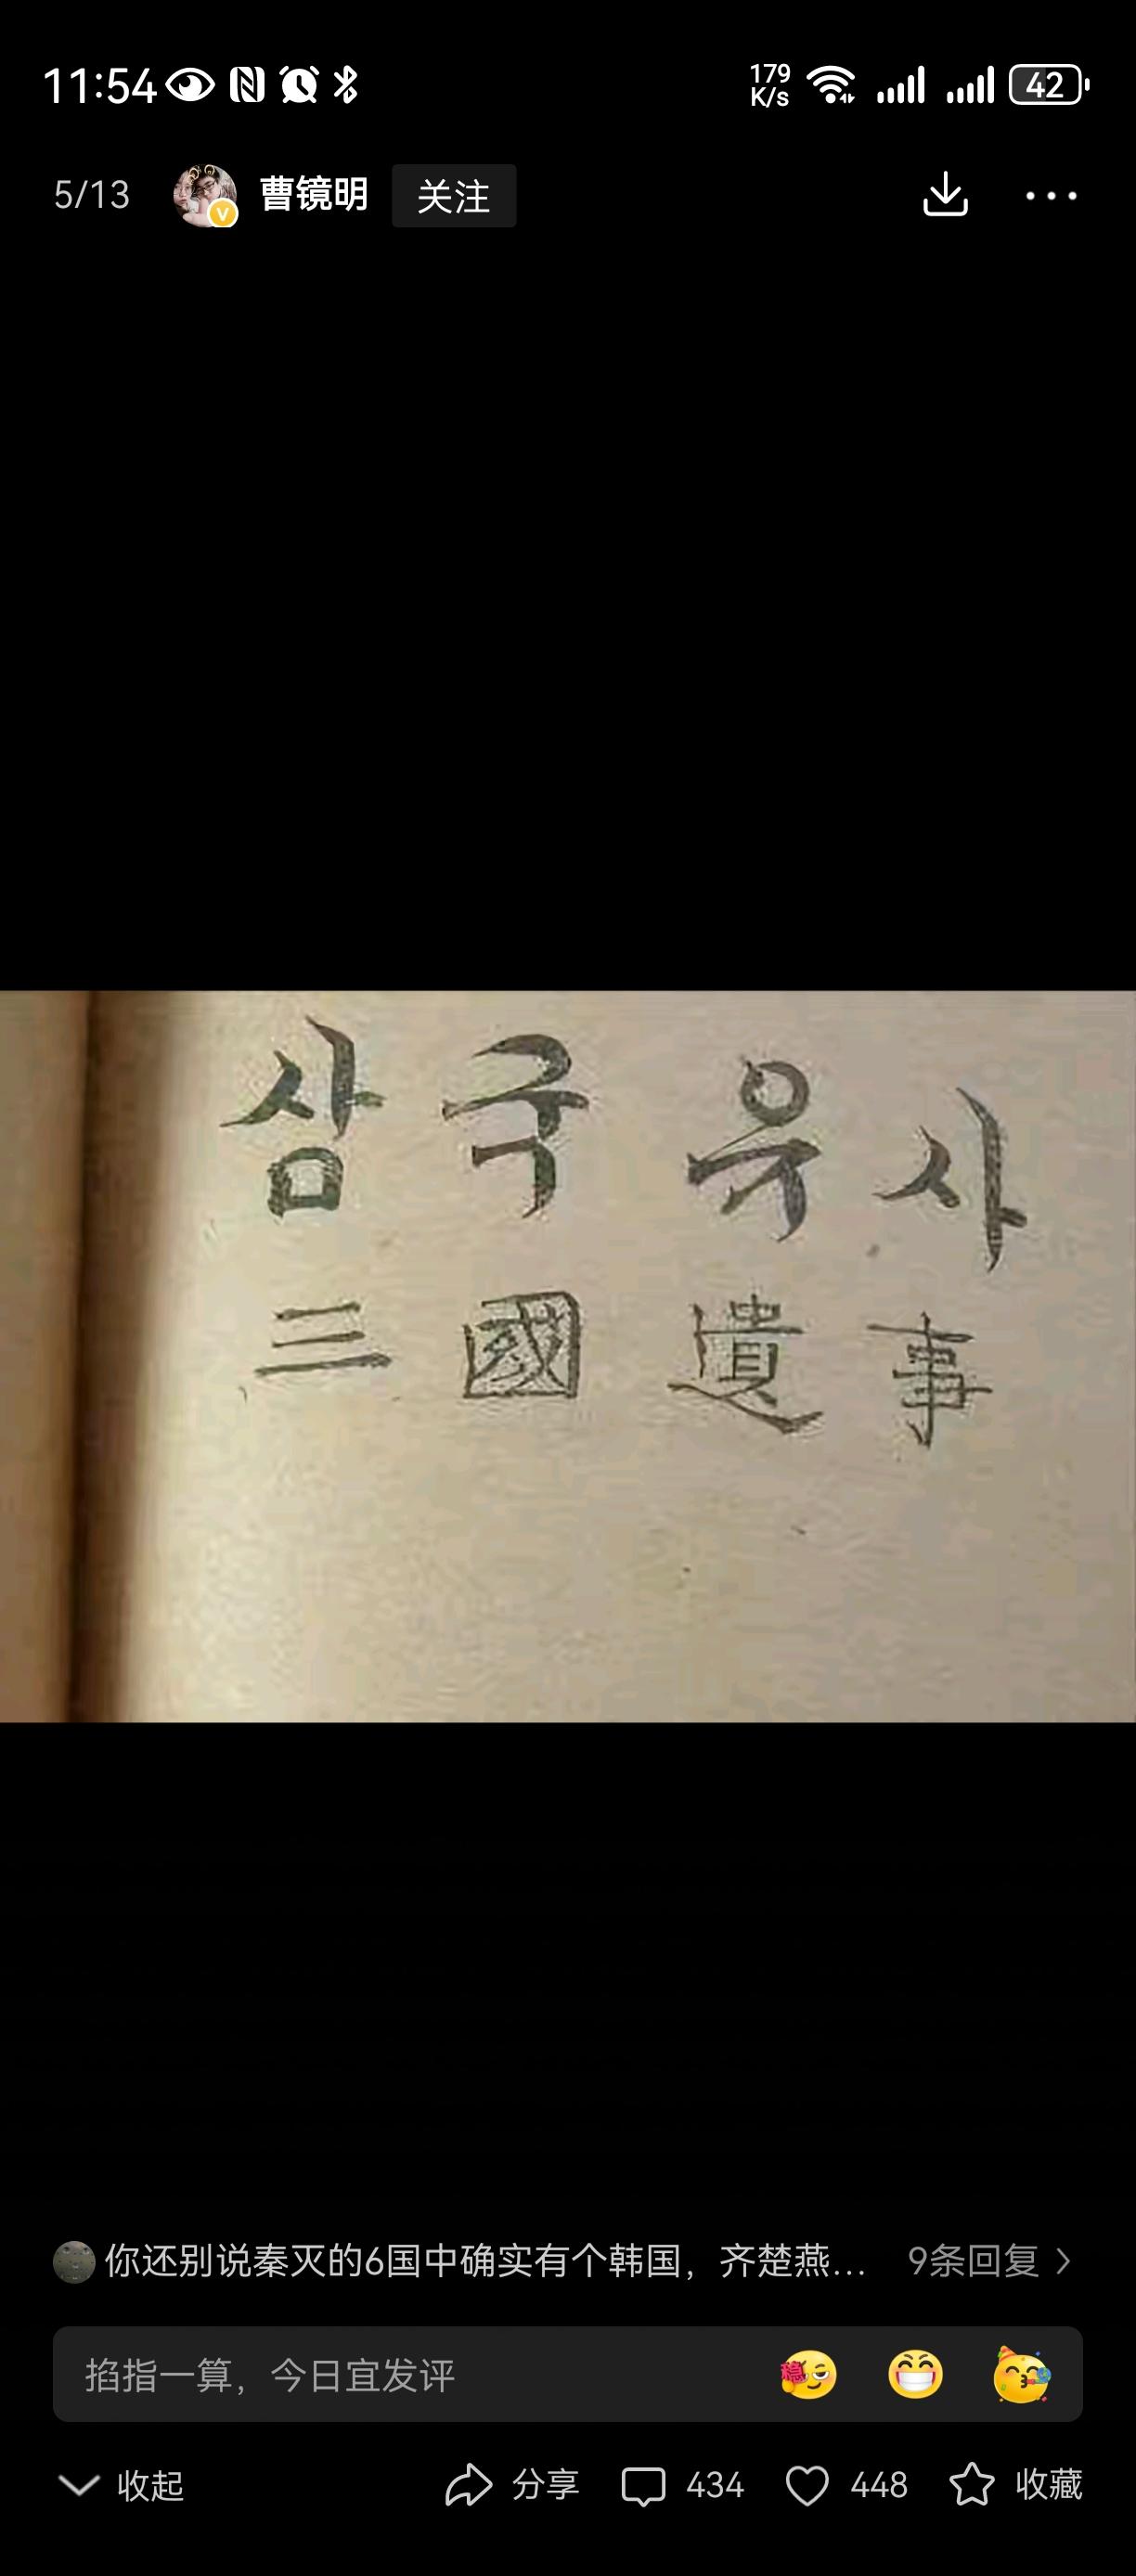 11:54
179 K/s
42
5/13 曹镜明 关注
삼국유사
三國遺事
你还别说秦灭的6国中确实有个韩国，齐楚燕... 9条回复
掐指一算，今日宜发评
稳
收起 分享 434 448 收藏